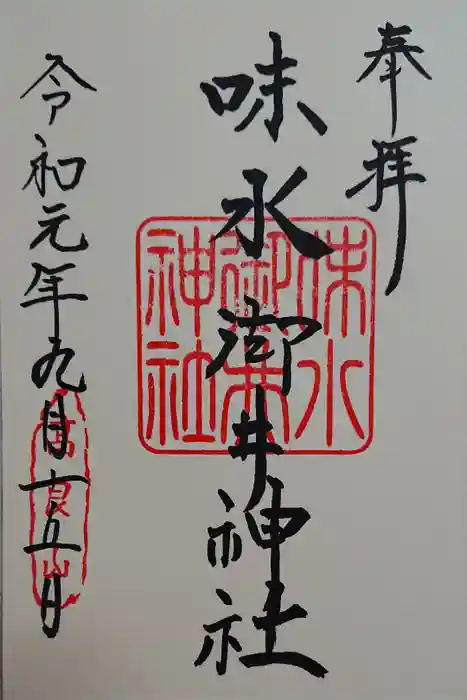 奉拝
味水御井神社
味水御井神社
令和元年九月十五日
高良山